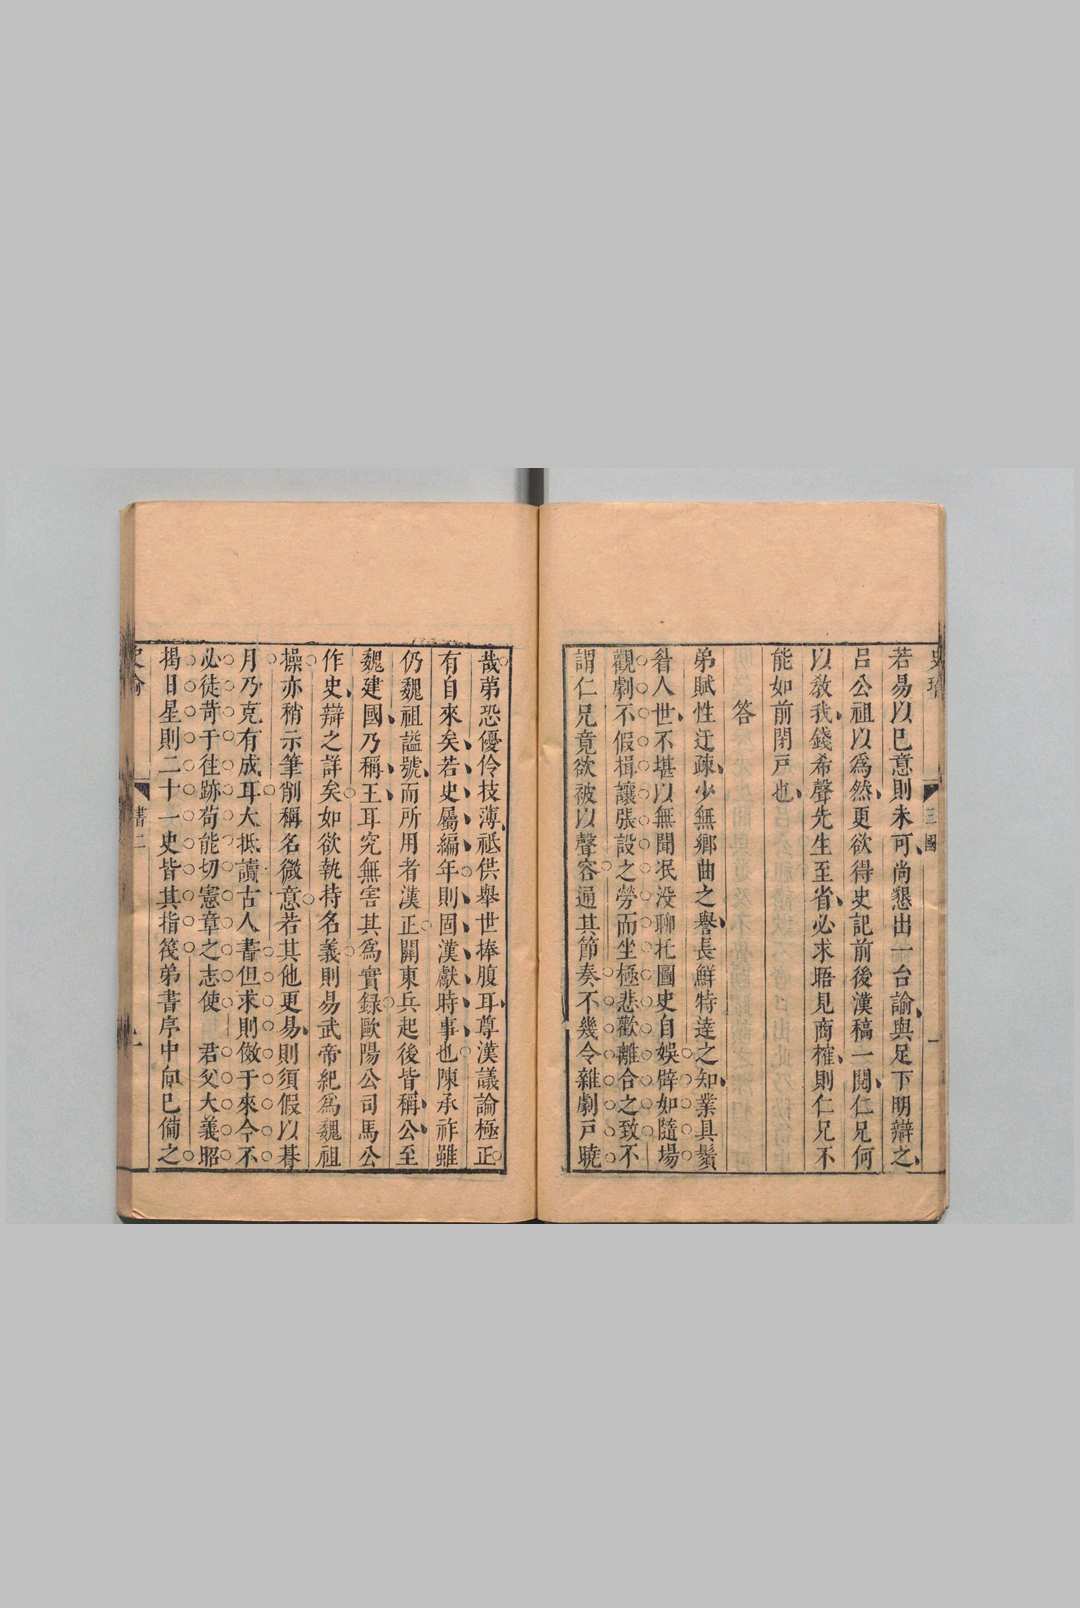 若易以已意則未可尚懇出一台諭與足下明辯之
呂公祖以為然更欲得史記前後漢稿一閱仁兄何
以教我錢希聲先生至省必求晤見商榷則仁兄不
能如前閉戶也
答
弟賦性迂疎少無鄉曲之譽長鮮特達之知業具鬚
眉人世不堪以無聞泯没聊托圖史自娛辟如隨場
觀劇不假揖讓張設之勞而坐極悲歡離合之致不
謂仁兄竟欲被以聲容適其節奏不幾令雜劇戶曉
哉第恐優伶技薄祗供舉世捧腹耳尊漢議論極正
有自來矣若史屬編年則固漢獻時事也陳承祚雖
仍魏祖謚號而所用者漢正關東兵起後皆稱公至
魏建國乃稱王耳究無害其為實録歐陽公司馬公
作史辯之詳矣如欲執持名義則易武帝紀為魏祖
操亦稍示筆削稱名微意若其他更易則須假以朞
月乃克有成耳大抵讀古人書但求則傚于來今不
必徒苛于往跡苟能切憲章之志使 君父大義昭
揭日星則二十一史皆其指筏弟書序中向已備之
三國
一
書二